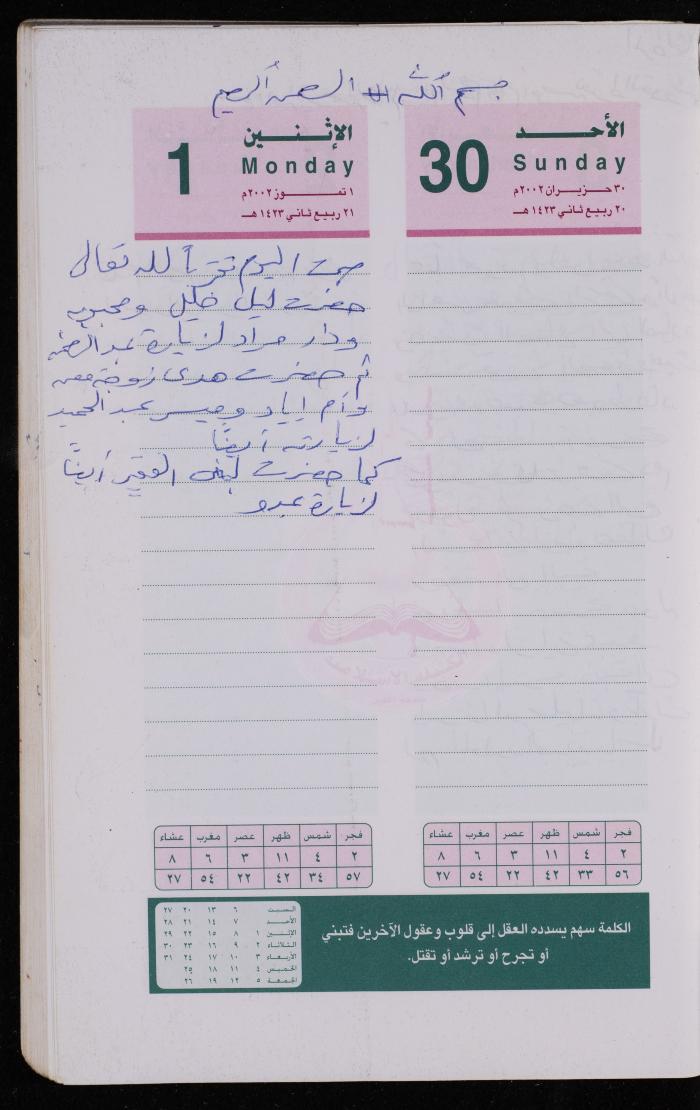 بسم الله الرحمن الرحيم
الأحــد
30 Sunday
٣٠ حـزيـران ٢٠٠٢م
٢٠ ربيع ثاني ١٤٢٣ هـ
الإثـنـين
1 Monday
١ تمـــوز ٢٠٠٢م
٢١ ربيع ثاني ١٤٢٣ هـ
صمت اليوم تقرباً لله تعالى
حضرت ليلى خليل ومحبوبه
ودار مراد لزيارة عبد الرحمن
ثم حضرت هدى زوجة معن
وأم إياد وميسر عبد الحميد
لزيارته أيضاً
كما حضرت لبنى الفقير أيضاً
لزيارة عبدو
فجر شمس ظهر عصر مغرب عشاء
٢ ٤ ١١ ٣ ٦ ٨
٥٦ ٣٣ ٤٢ ٢٢ ٥٤ ٢٧
فجر شمس ظهر عصر مغرب عشاء
٢ ٤ ١١ ٣ ٦ ٨
٥٧ ٣٤ ٤٢ ٢٢ ٥٤ ٢٧
الكلمة سهم يسدده العقل إلى قلوب وعقول الآخرين فتبني
أو تجرح أو ترشد أو تقتل.
السبت ٦ ١٣ ٢٠ ٢٧
الأحد ٧ ١٤ ٢١ ٢٨
الإثنين ١ ٨ ١٥ ٢٢ ٢٩
الثلاثاء ٢ ٩ ١٦ ٢٣ ٣٠
الأربعاء ٣ ١٠ ١٧ ٢٤ ٣١
الخميس ٤ ١١ ١٨ ٢٥
الجمعة ٥ ١٢ ١٩ ٢٦